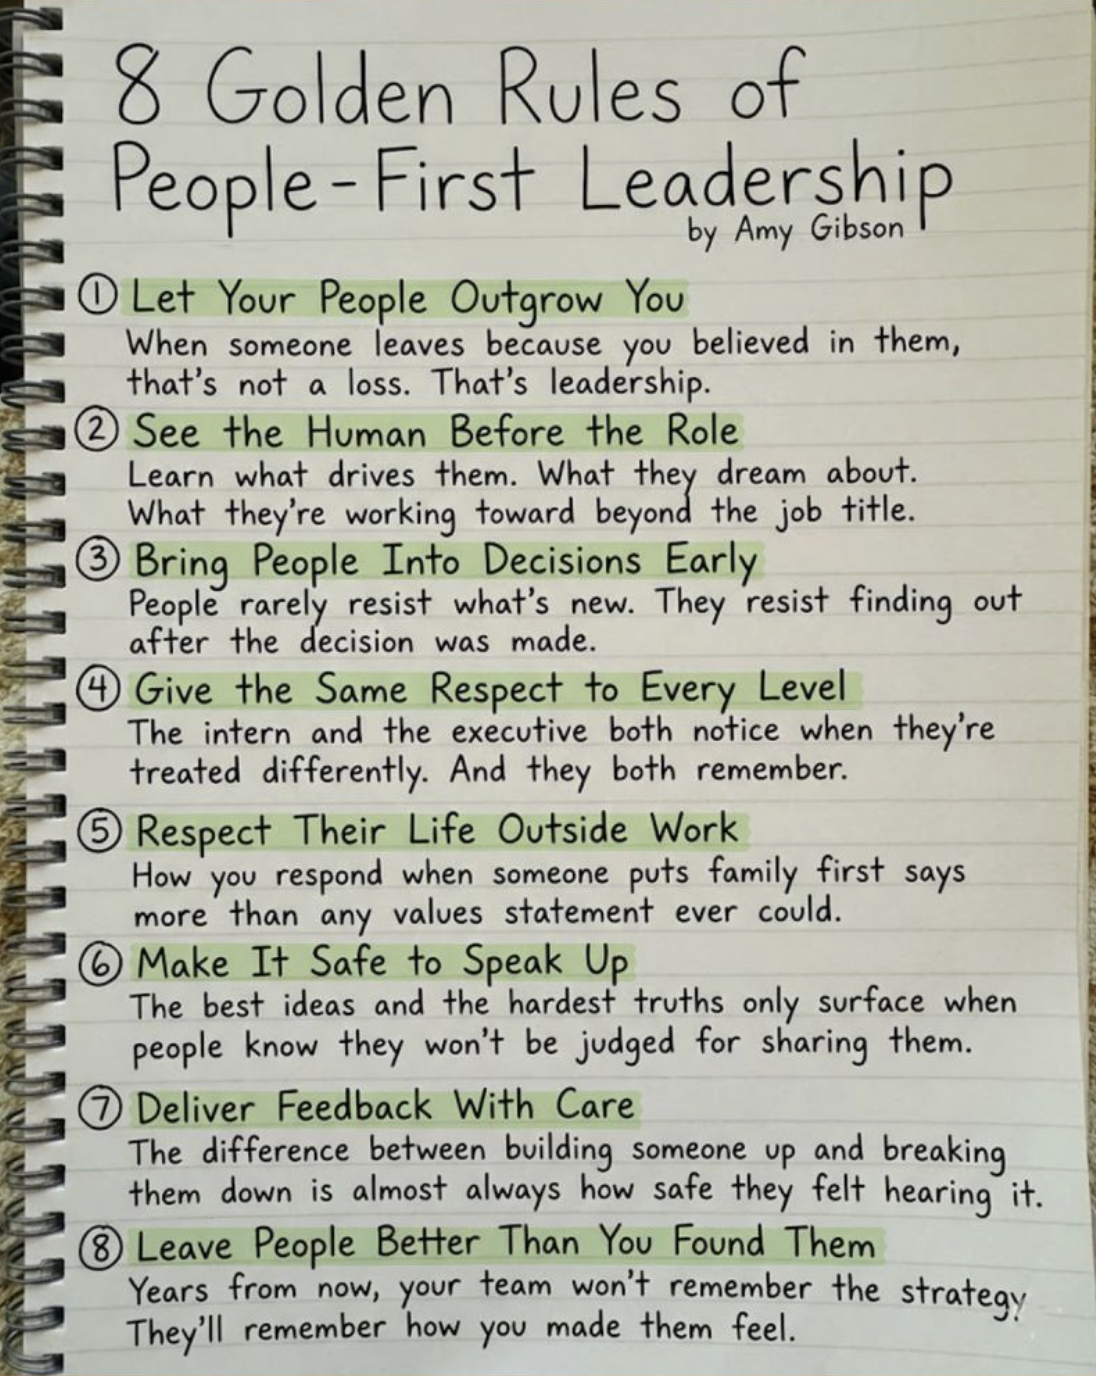 8 Golden Rules of
People-First Leadership
by Amy Gibson
① Let Your People Outgrow You
When someone leaves because you believed in them,
that's not a loss. That's leadership.
② See the Human Before the Role
Learn what drives them. What they dream about.
What they're working toward beyond the job title.
③ Bring People Into Decisions Early
People rarely resist what's new. They resist finding out
after the decision was made.
④ Give the Same Respect to Every Level
The intern and the executive both notice when they're
treated differently. And they both remember.
⑤ Respect Their Life Outside Work
How you respond when someone puts family first says
more than any values statement ever could.
⑥ Make It Safe to Speak Up
The best ideas and the hardest truths only surface when
people know they won't be judged for sharing them.
⑦ Deliver Feedback With Care
The difference between building someone up and breaking
them down is almost always how safe they felt hearing it.
⑧ Leave People Better Than You Found Them
Years from now, your team won't remember the strategy
They'll remember how you made them feel.